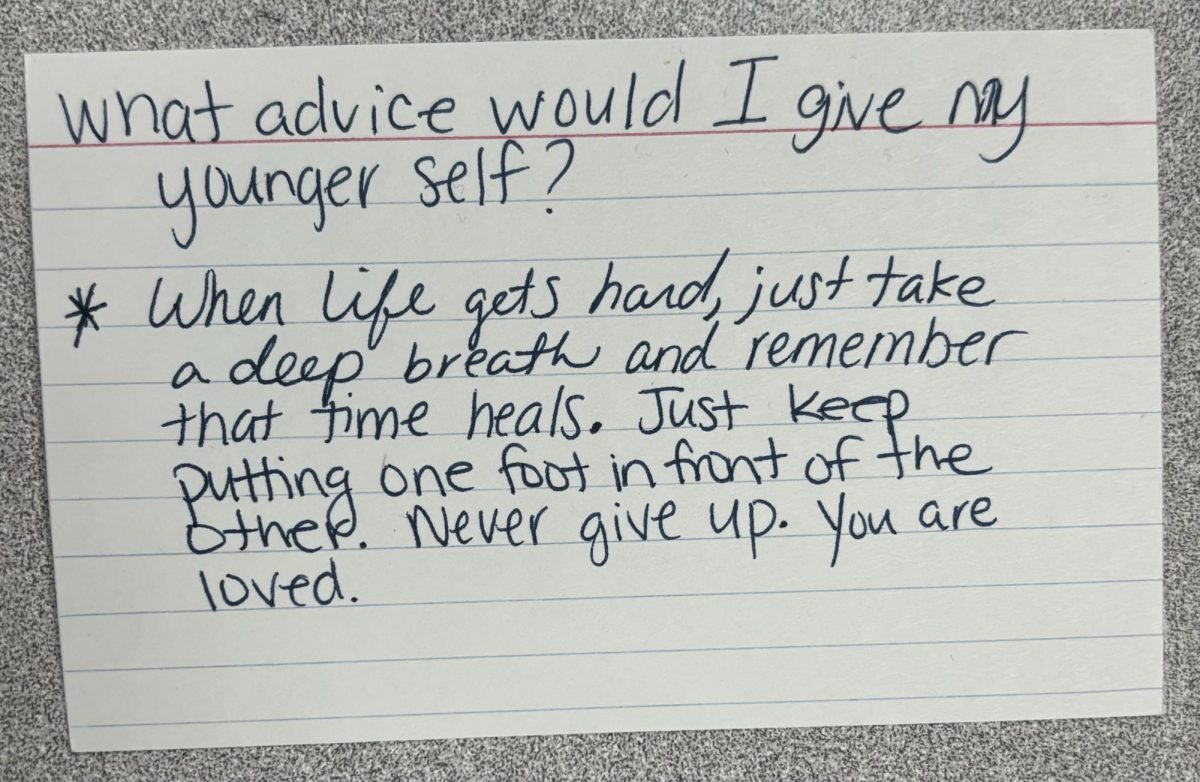 What advice would I give my
younger self?
* When life gets hard, just take
a deep breath and remember
that time heals. Just keep
putting one foot in front of the
other. Never give up. You are
loved.